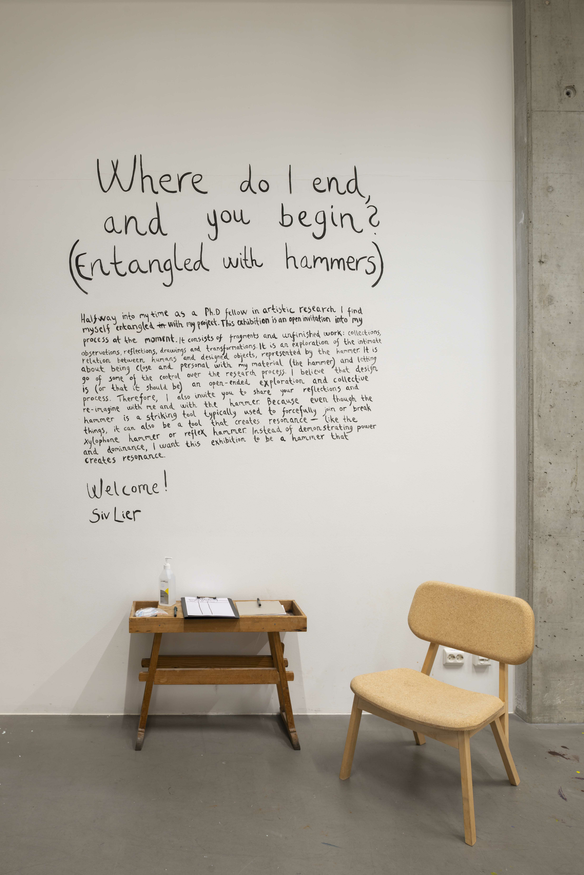 Where do I end,
and you begin?
(Entangled with hammers)
Halfway into my time as a Ph.D fellow in artistic research I find
myself entangled with my project. This exhibition is an open invitation into my
process at the moment. It consists of fragments and unfinished work: collections,
observations, reflections, drawings and transformations. It is an exploration of the intimate
relation between, humans and designed objects, represented by the hammer. It is
about being close and personal with my material (the hammer) and letting
go of some of the control over the research process. I believe that design
is (or that it should be) an open-ended exploration and collective
process. Therefore, I also invite you to share your reflections and
re-imagine with me and with the hammer. Because even though the
hammer is a striking tool typically used to forcefully join or break
things, it can also be a tool that creates resonance – like the
xylophone hammer or reflex hammer. Instead of demonstrating power
and dominance, I want this exhibition to be a hammer that
creates resonance.
Welcome!
Siv Lier